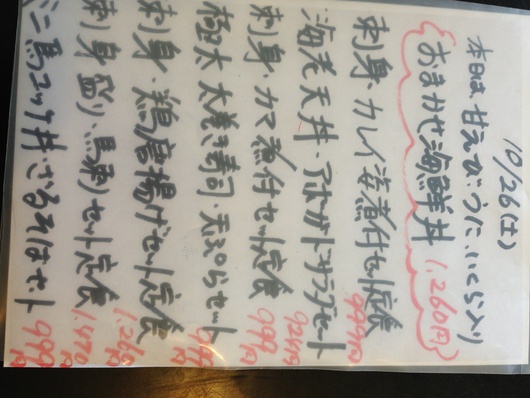 10/26(土)
本日は、甘えび、うに、いくら入り
おまかせ海鮮丼 1.260円
刺身・カレイ煮付セット定食 999円
海老天丼・アボカドサラダセット 924円
刺身・カマ煮付セット定食 999円
極太 太巻き寿司・天ぷらセット
刺身・鶏唐揚げセット定食 1.260円
刺身盛り・馬刺セット定食 1.470円
ミニ馬ユッケ丼・ざるそばセット 999円